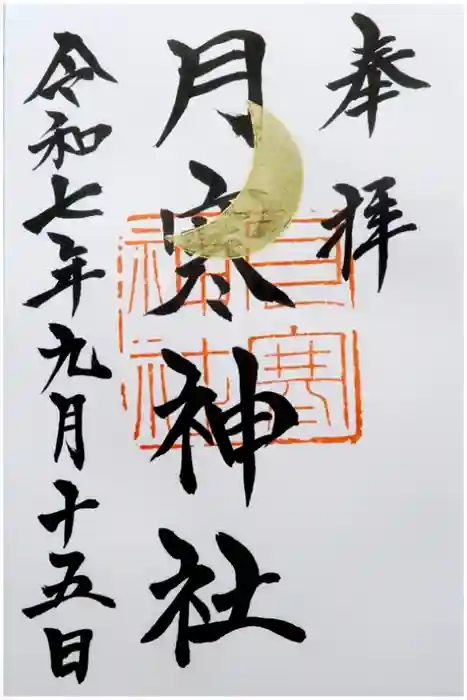 奉拝
月寒神社
月寒神社
令和七年九月十五日